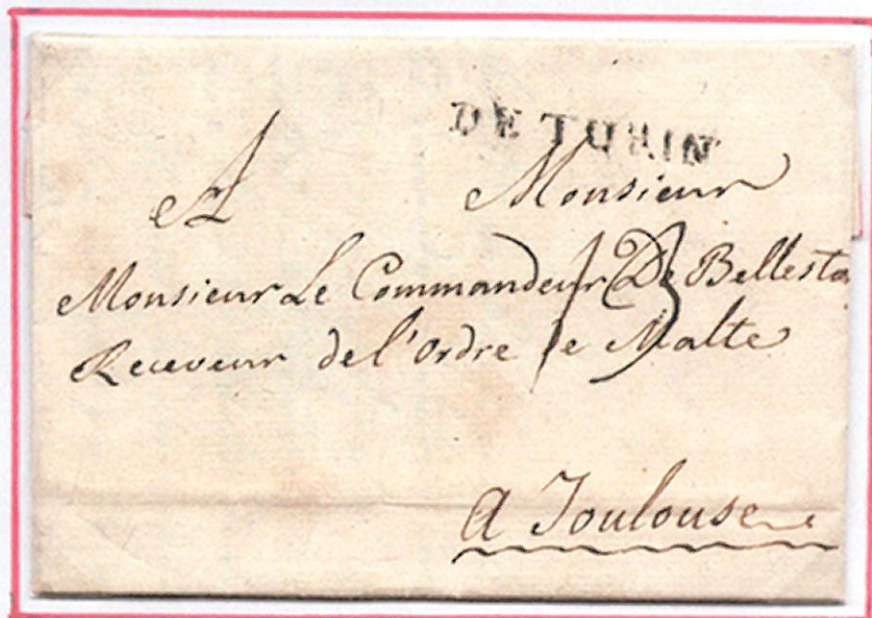 DE TURIN
A Monsieur
Monsieur Le Commandeur De Bellesta
Receveur de l'Ordre de Malte
13
a Toulouse